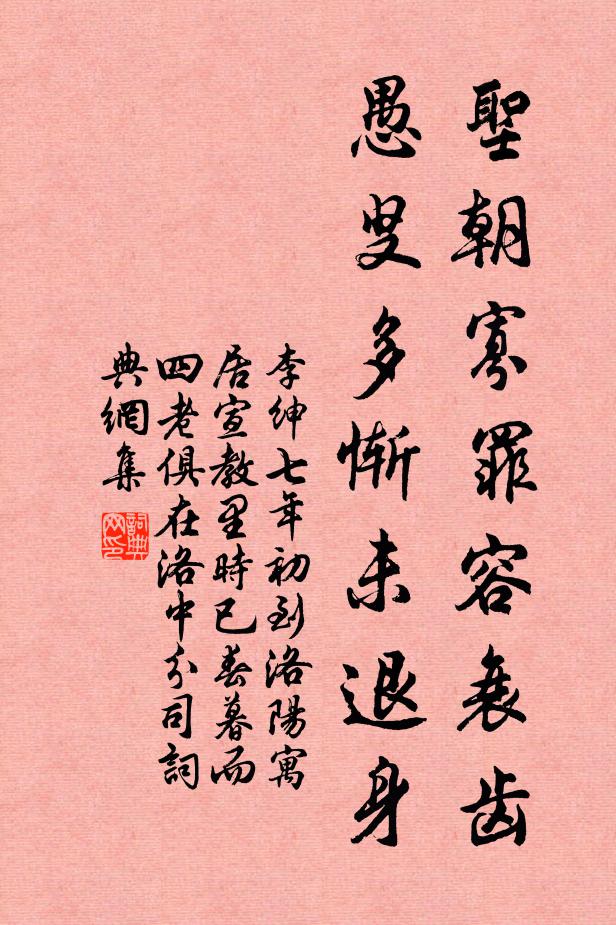 聖朝寡罪容衰齿
愚叟多慚未退身
李紳七年初到洛陽寓
居宣教里時已春暮而
四老俱在洛中分司詞
典網集
詞典网印